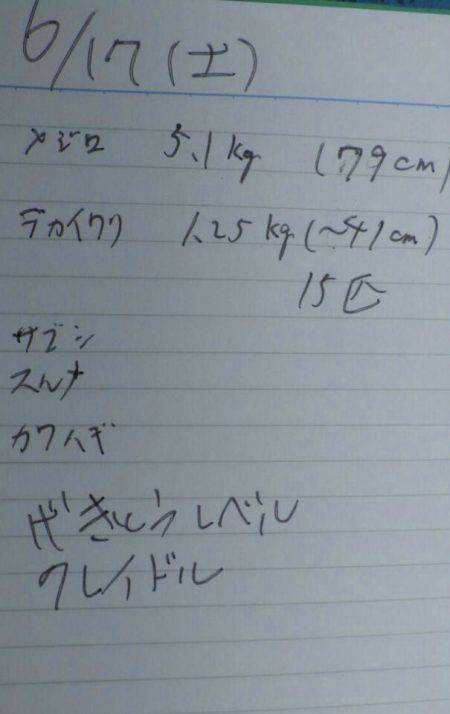 6/17(土)
メジロ 5.1kg (79cm)
デカイワク 1.25kg(~41cm)
15匹
サゴシ
スルナ
カワハギ
ぜきとうレベル
クレイドル